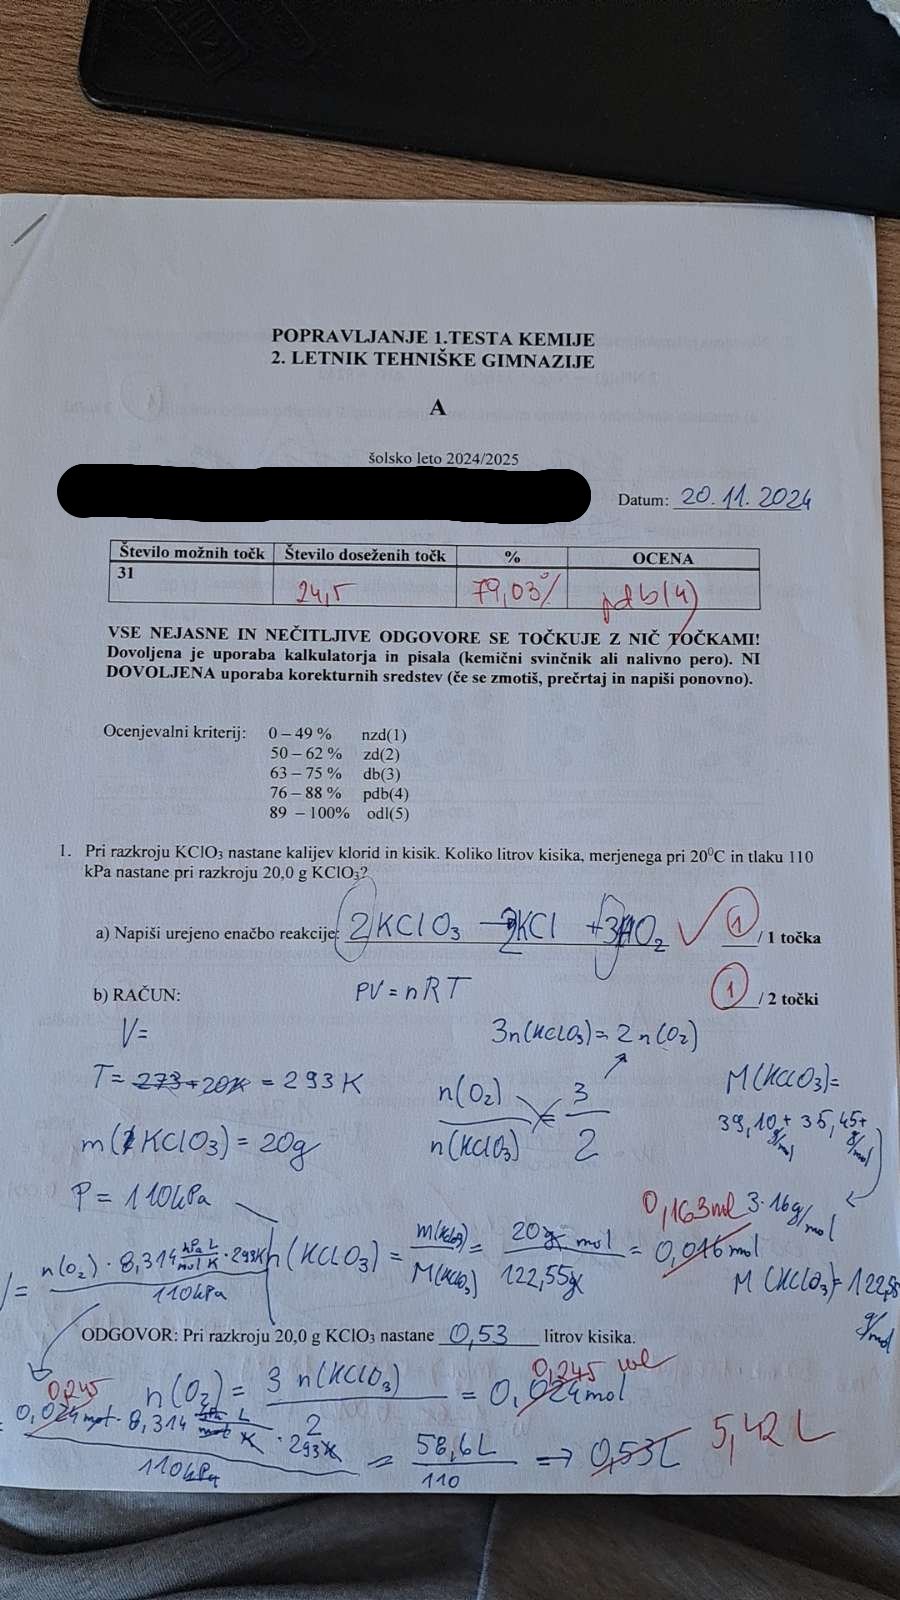 POPRAVLJANJE 1.TESTA KEMIJE
2. LETNIK TEHNIŠKE GIMNAZIJE
A
šolsko leto 2024/2025
Datum: 20.11.2024
Število možnih točk Število doseženih točk % OCENA
31 24,5 79,03% pdb(4)
VSE NEJASNE IN NEČITLJIVE ODGOVORE SE TOČKUJE Z NIČ TOČKAMI!
Dovoljena je uporaba kalkulatorja in pisala (kemični svinčnik ali nalivno pero). NI
DOVOLJENA uporaba korekturnih sredstev (če se zmotiš, prečrtaj in napiši ponovno).
Ocenjevalni kriterij: 0 – 49 % nzd(1)
50 – 62 % zd(2)
63 – 75 % db(3)
76 – 88 % pdb(4)
89 – 100% odl(5)
1. Pri razkroju KClO₃ nastane kalijev klorid in kisik. Koliko litrov kisika, merjenega pri 20⁰C in tlaku 110
kPa nastane pri razkroju 20,0 g KClO₃?
a) Napiši urejeno enačbo reakcije: 2KClO₃ → 2KCl + 3O₂ ✓ 1 / 1 točka
b) RAČUN: PV = nRT 1 / 2 točki
V=
3n(KClO₃) = 2n(O₂)
T= 273+20K = 293K
n(O₂) / n(KClO₃) = 3 / 2
M(KClO₃)=
39,10 g/mol + 35,45 g/mol +
3·16g/mol
m(KClO₃) = 20g
P = 110kPa
0,163mol
V = n(O₂) · 8,314 kPa L / mol K · 293K / 110kPa
n(KClO₃) = m(KClO₃) / M(KClO₃) = 20g mol / 122,55g = 0,016mol
M(KClO₃)= 122,55 g/mol
ODGOVOR: Pri razkroju 20,0 g KClO₃ nastane 0,53 litrov kisika.
n(O₂) = 3 n(KClO₃) / 2 = 0,024mol
0,245
0,245 mol
= 0,024mol · 8,314 kPa L / mol K · 293K / 110kPa = 58,6L / 110 => 0,53L 5,42L